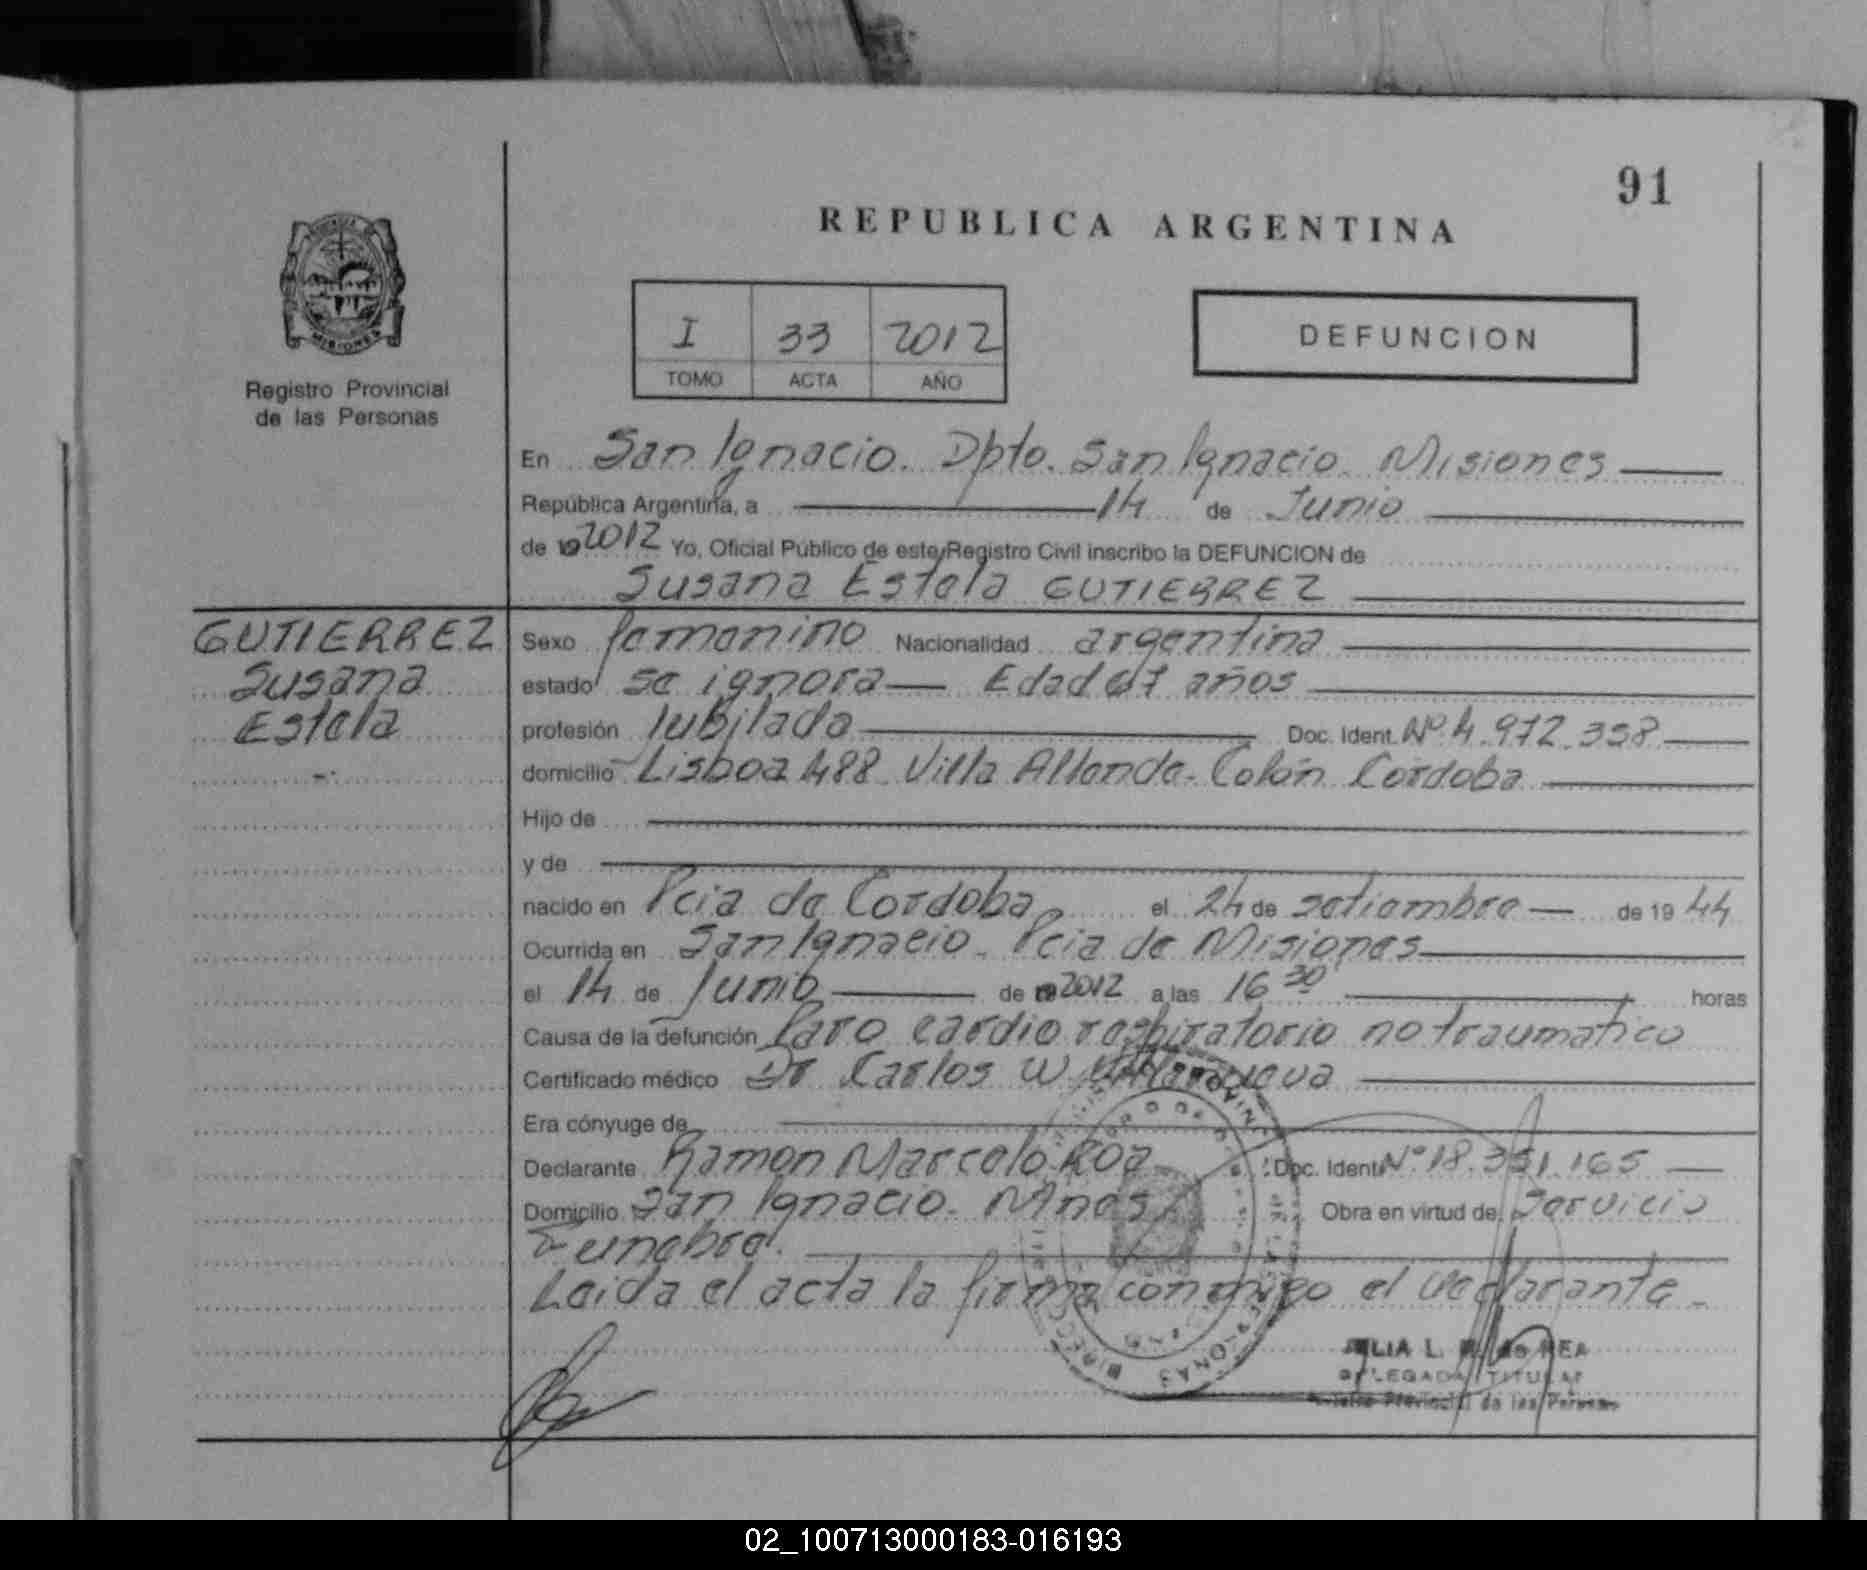 91
REPUBLICA ARGENTINA
MISIONES
Registro Provincial
de las Personas
I 33 2012
TOMO ACTA AÑO
DEFUNCION
En San Ignacio. Dpto. San Ignacio. Misiones
República Argentina, a 14 de Junio
de 192012 Yo, Oficial Público de este Registro Civil inscribo la DEFUNCION de
Susana Estela GUTIERREZ
GUTIERREZ
Susana
Estela
Sexo femenino Nacionalidad argentina
estado se ignora Edad 67 años
profesión Jubilada Doc. Ident. Nº 4.972.358
domicilio Lisboa 488 Villa Allende. Colón Córdoba
Hijo de
y de
nacido en Pcia de Cordoba el 24 de setiembre de 19 44
Ocurrida en San Ignacio. Pcia de Misiones
el 14 de Junio de 2012 a las 16 30 horas
Causa de la defunción Paro cardio respiratorio no traumatico
Certificado médico Dr Carlos W Villanueva
Era cónyuge de
Declarante Ramon Marcelo Roa Doc. Ident. Nº 18.351.165
Domicilio San Ignacio. Mnes Obra en virtud de Servicio
Funebre.
Leida el acta la firma conmigo el declarante.
DELEGADA TITULAR
Provincial de las Personas
02_100713000183-016193